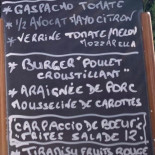 * GASPACHO TOMATE
* 1/2 AVOCAT MAYO CITRON
* VERRINE TOMATE/MELON
MOZZARELLA
* BURGER "POULET
CROUSTILLANT"
* ARAIGNÉE DE PORC
MOUSSELINE DE CAROTTES
"CARPACCIO DE BOEUF"
FRITES SALADE 12.
* TIRAMISU FRUITS ROUGE